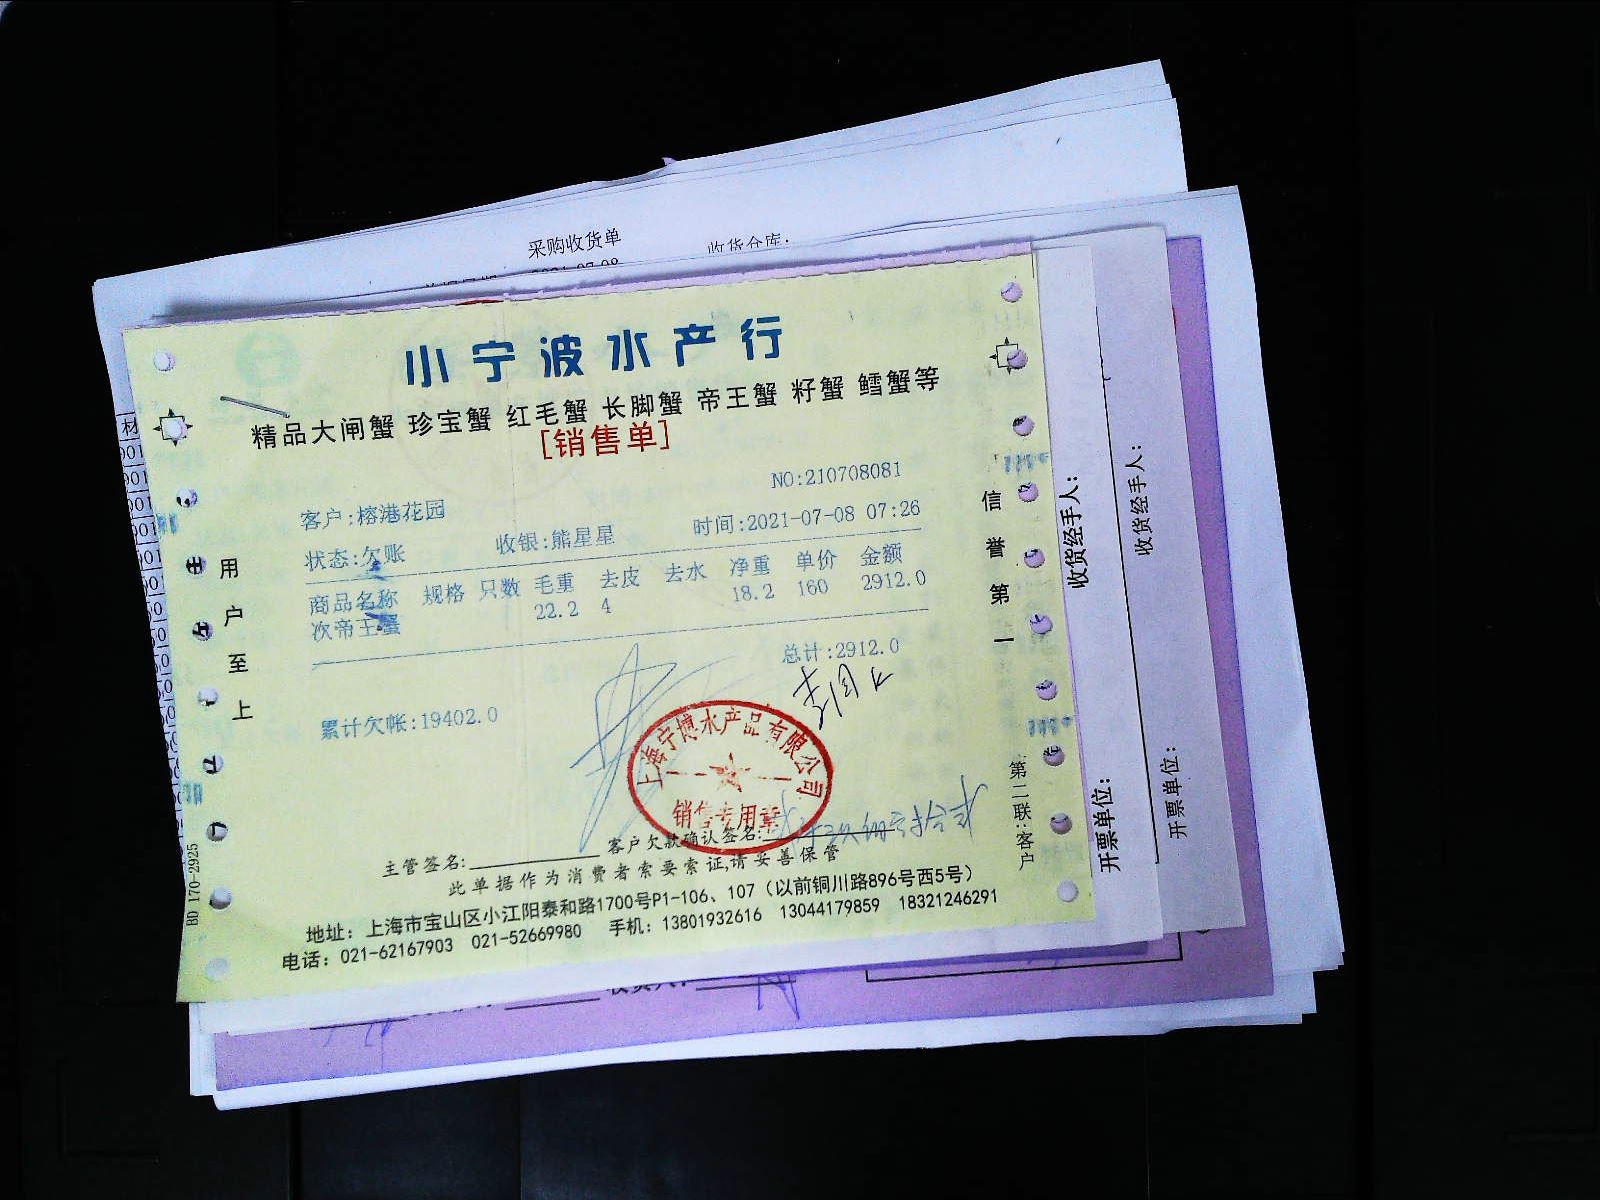 采购收货单
收货仓库:
小宁波水产行
精品大闸蟹 珍宝蟹 红毛蟹 长脚蟹 帝王蟹 籽蟹 鳕蟹等
[销售单]
NO:210708081
客户:榕港花园
状态:欠账 收银:熊星星 时间:2021-07-08 07:26
商品名称 规格 只数 毛重 去皮 去水 净重 单价 金额
次帝王蟹 22.2 4 18.2 160 2912.0
总计:2912.0
累计欠帐:19402.0
上海宁博水产品有限公司
销售专用章
主管签名: 客户欠款确认签名:
此单据作为消费者索要索证,请妥善保管
地址：上海市宝山区小江阳泰和路1700号P1-106、107（以前铜川路896号西5号）
电话：021-62167903 021-52669980 手机：13801932616 13044179859 18321246291
用户至上
信誉第一
第二联:客户
BD 170-2925
收货经手人：
开票单位：
收货经手人：
开票单位：
材